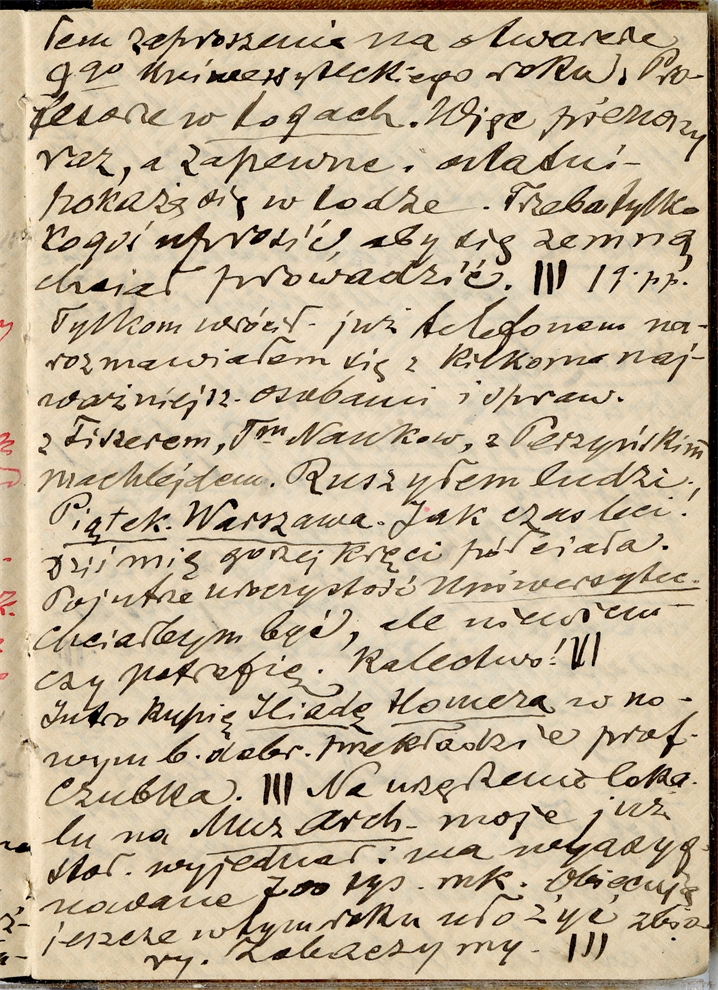 łem zaproszenie na otwarcie
9go Uniwersyteckiego roku. Pro-
fesorze w togach. Więc pierwszy
raz, a zapewne i ostatni
pokażą się w todze. Trzeba tylko
kogoś uprosić, aby się zemną
chciał prowadzić. III 19. pp.
Tylkom wrócił - już telefonem na-
rozmawiałem się z kilkoma naj-
ważniejsz. osobami i spraw.
z Fiszerem, Tm Naukow, z Perzyńskim
Machlejdem. Ruszyłem ludzi.
Piątek. Warszawa. Jak czas leci!
Dziś mię gorzej kręci pół ciała.
Pojutrze uroczystość Uniwersytec.
chciałbym być, ale niewiem
czy potrafię. Kalectwo! VI
Jutro kupię Iliadę Homera w no-
wym b. dobr. przekładzie prof.
Czubka. III Na urządzenie loka-
lu na Muz Arch- moje już
stoł. wyjednał i ma wyasyg-
nowane 700 tys. mk. Obiecuję
jeszcze w tym roku ułożyć zbio-
ry. Zobaczymy. III